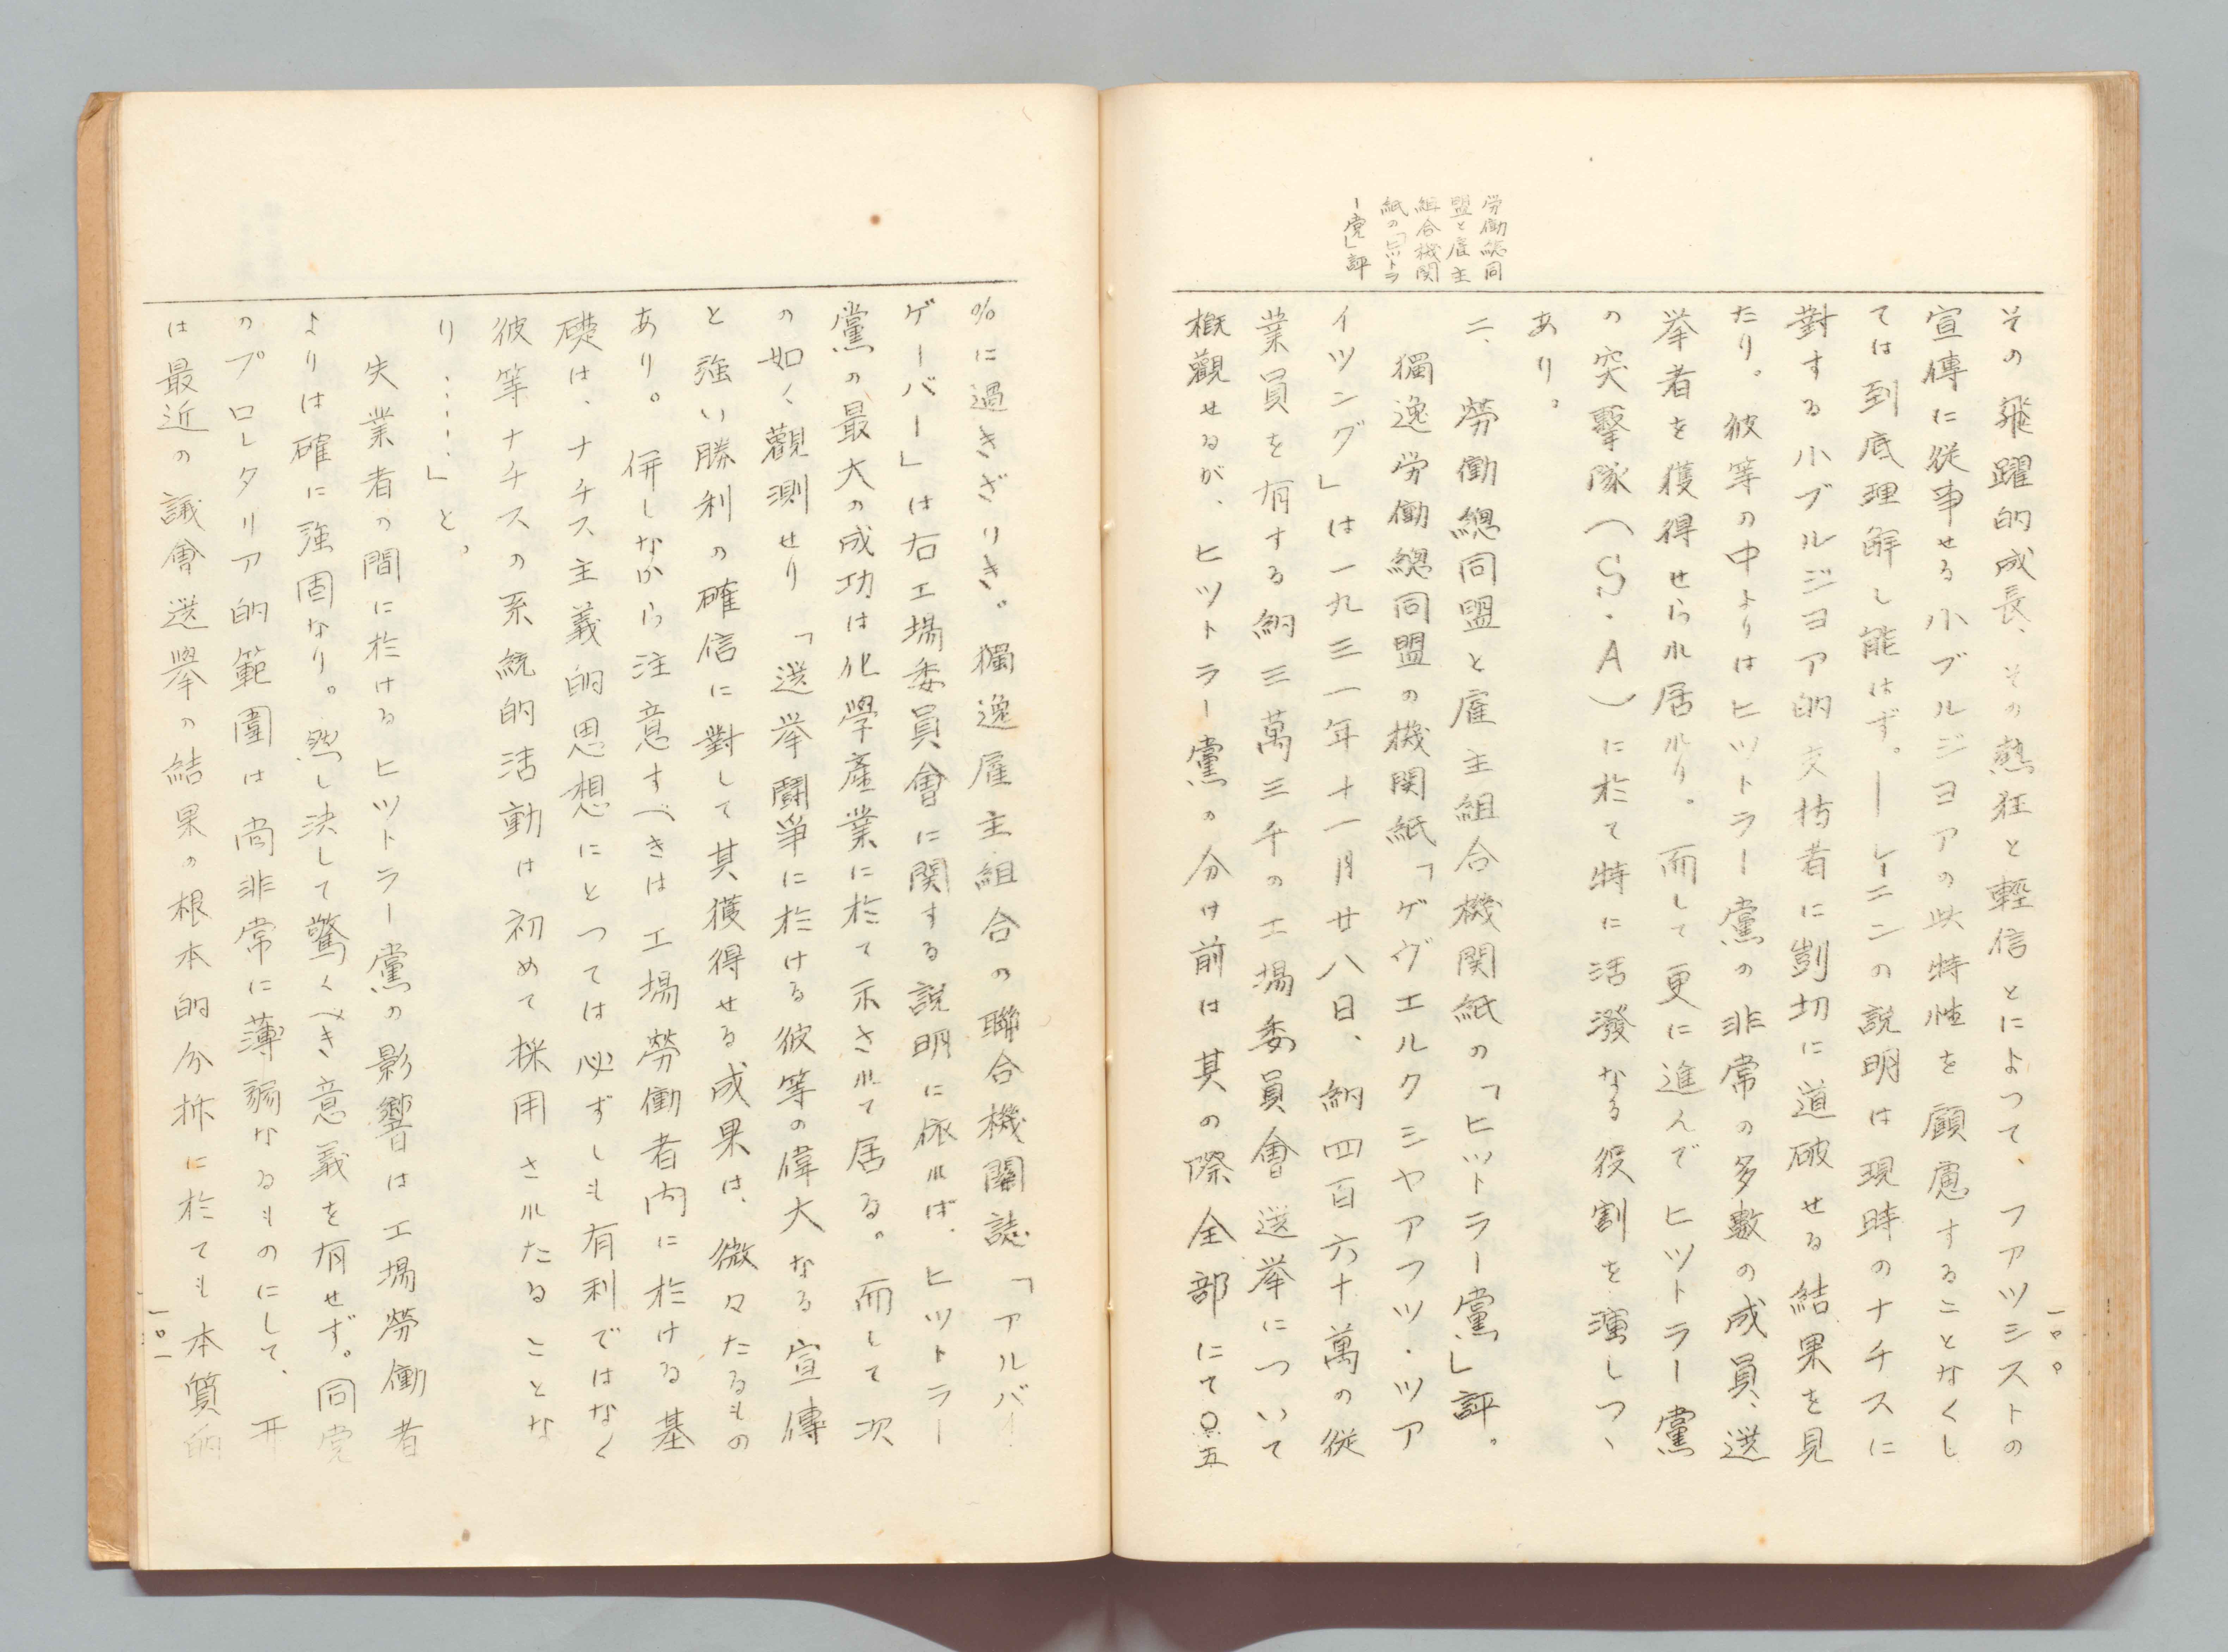 労働総同
盟と雇主
組合機関
紙の「ヒットラ
ー党」評
その飛躍的成長、その熱狂と軽信とによつて、フアツシストの
宣傳に従事せる小ブルジヨアの此特性を顧慮することなくし
ては到底理解し能はず。―レーニンの説明は現時のナチスに
對する小ブルジヨア的支持者に剴切に道破せる結果を見
たり。彼等の中よりはヒツトラー黨の非常の多數の成員、選
挙者を獲得せられ居れり。而して更に進んでヒツトラー黨
の突撃隊(S.A)に於て特に活潑なる役割を演しつゝ
あり。
二、勞働總同盟と雇主組合機関紙の「ヒットラー黨」評。
獨逸労働總同盟の機関紙「ゲヴエルクシヤアフツ・ツア
イツング」は一九三一年十一月廿八日、約四百六十萬の従
業員を有する約三萬三千の工場委員會選挙について
概觀せるが、ヒツトラー黨の分け前は其の際全部にて〇.五
一〇〇
%に過きざりき。獨逸雇主組合の聯合機關誌「アルバイ
ゲーバー」は右工場委員會に関する説明に依れば、ヒツトラー
黨の最大の成功は化學産業に於て示されて居る。而して次
の如く觀測せり「選挙鬪爭に於ける彼等の偉大なる宣傳
と強い勝利の確信に對して其獲得せる成果は、微々たるもの
あり。併しなから注意すべきは工場勞働者内に於ける基
礎は、ナチス主義的思想にとつては必ずしも有利ではなく
彼等ナチスの系統的活動は初めて採用されたることな
り……」と。
失業者の間に於けるヒツトラー黨の影響は工場勞働者
よりは確に強固なり。然し決して驚くべき意義を有せず。同党
のプロレタリア的範圍は尚非常に薄弱なるものにして、
は最近の議會選擧の結果の根本的分析に於ても本質的
一〇一